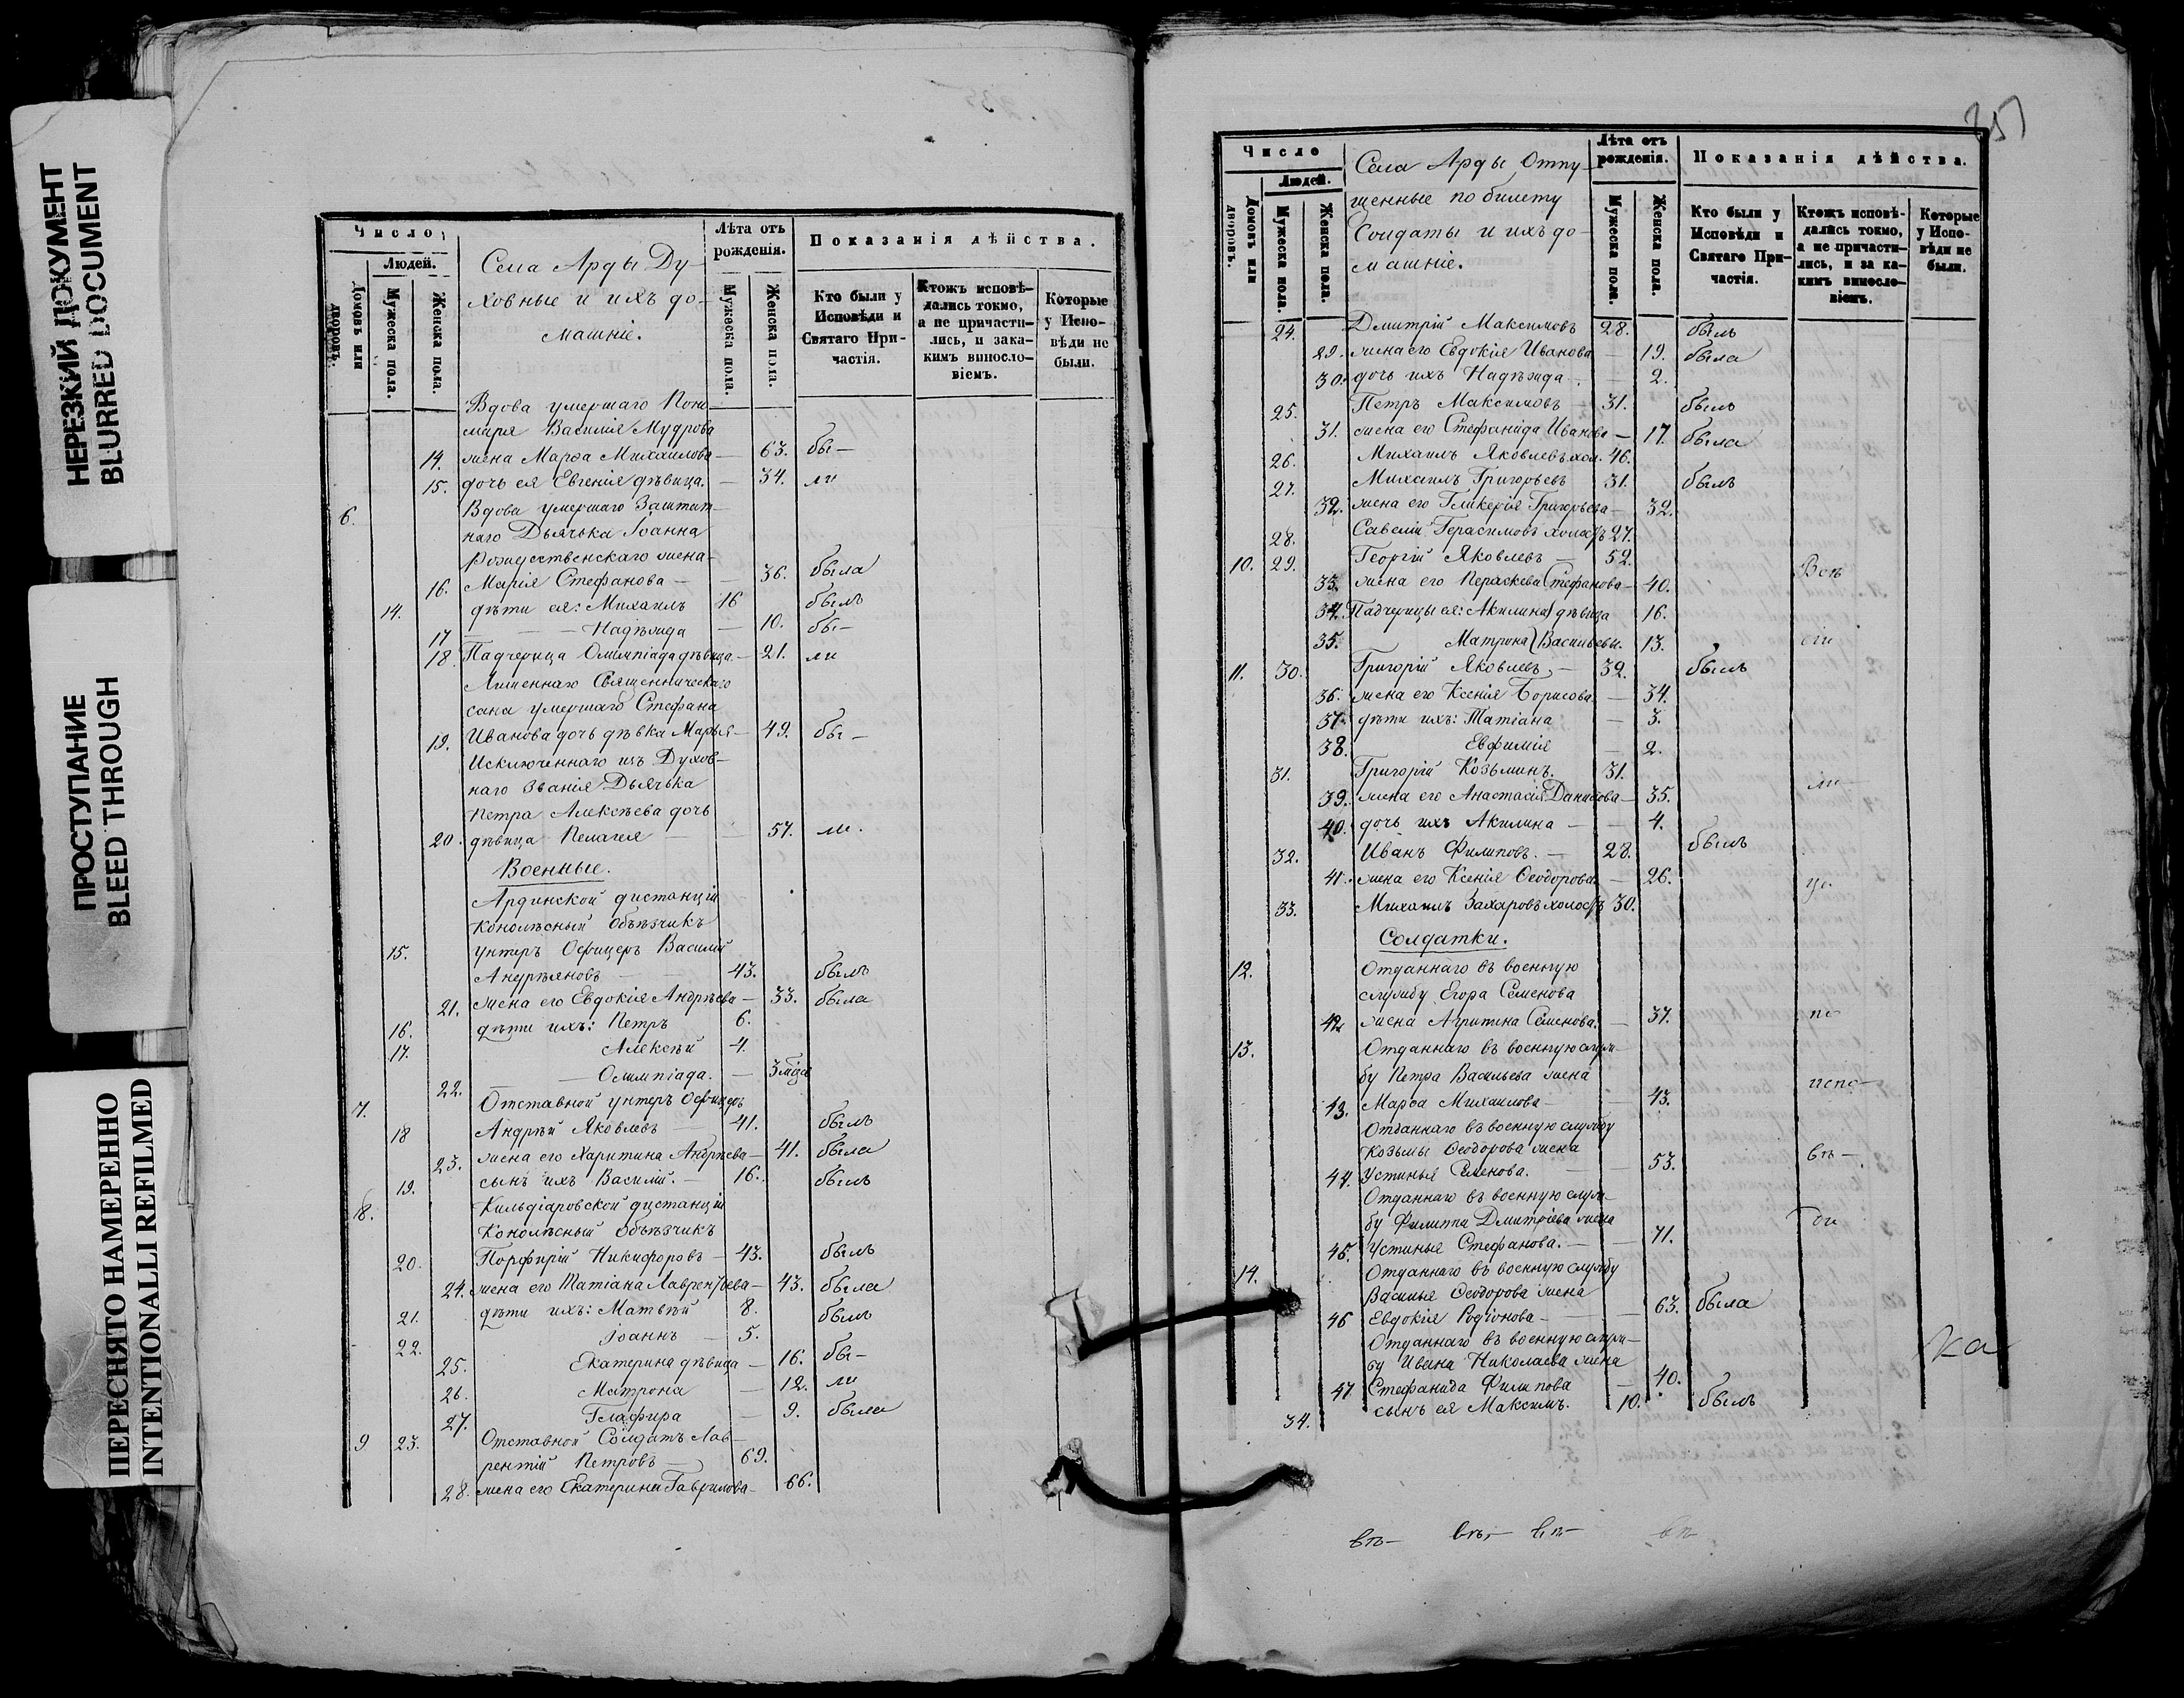 НЕРЕЗКИЙ ДОКУМЕНТ
BLURRED DOCUMENT
ПРОСТУПАНИЕ
BLEED THROUGH
ПЕРЕСНЯТО НАМЕРЕННО
INTENTIONALLI REFILMED
Число
Людей.
Домовъ или дворовъ.
Мужеска пола.
Женска пола.
Села Арды Ду-
ховные и ихъ до-
машніе.
Лѣта отъ рожденія.
Мужеска пола.
Женска пола.
Показанія дѣйства.
Кто были у Исповѣди и Святаго Причастія.
Ктожъ исповѣдались токмо, а не причастились, и за какимъ винословіемъ.
Которые у Исповѣди не были.
Вдова умершаго Поно-
маря Василія Мудрова
14. жена Марѳа Михаилова — 63. бы-
15. дочь ея Евгенія дѣвица. — 34. ли
6. Вдова умершаго Заштат-
наго Дьячька Іоанна
Рождественскаго жена
16. Марія Стефанова — 36. была
14. дѣти ея: Михаилъ 16 былъ
17 — Надѣжда — 10. бы-
18. Падчерица Олимпіада дѣвица — 21. ли
Лишеннаго Священническаго
сана умершаго Стефана
19. Иванова дочь дѣвка Марья — 49. бы-
Исключеннаго изъ Духов-
наго Званія Дьячька
Петра Алексѣева дочь
20. дѣвица Пелагея — 57. ли.
Военные.
Ардинской дистанціи
Конолѣсный Объѣзчикъ
15. унтеръ Офицеръ Василій
Андрѣяновъ — 43. былъ
21. жена его Евдокія Андрѣева — 33. была
16. дѣти ихъ: Петръ 6.
17. Алексѣй 4.
22. — Олимпіада. — 3 мѣся
7. Отставной унтеръ Офицеръ
18 Андрѣй Яковлевъ — 41. былъ
23. жена его Харитина Андрѣева — 41. была
19. сынъ ихъ Василій. — 16. былъ
8. Кильдіаровской дистанціи
Конолѣсный Объѣзчикъ
20. Порфирій Никифоровъ — 43. былъ
24. жена его Татіана Лаврентьева — 43. была
21. дѣти ихъ: Матвѣй 8. былъ
22. Іоаннъ — 5.
25. Екатерина дѣвица — 16. бы-
26. Матрона — 12. ли
27. Глафира — 9. была
9 23. Отставной Солдатъ Лав-
рентій Петровъ — 69.
28. жена его Екатерина Гаврилова — 66.
251
Число
Людей.
Домовъ или дворовъ.
Мужеска пола.
Женска пола.
Села Арды Отпу-
щенные по билету
Солдаты и ихъ до-
машніе.
Лѣта отъ рожденія.
Мужеска пола.
Женска пола.
Показанія дѣйства.
Кто были у Исповѣди и Святаго Причастія.
Ктожъ исповѣдались токмо, а не причастились, и за какимъ винословіемъ.
Которые у Исповѣди не были.
24. Дмитрій Максимовъ 28. былъ
29. жена его Евдокія Иванова — 19. была
30. дочь ихъ Надѣжда — 2.
25. Петръ Максимовъ — 31. былъ
31. жена его Стефанида Иванова — 17. была
26. Михаилъ Яковлевъ хол. 46.
27. Михаилъ Григорьевъ 31. былъ
32. жена его Гликерія Григорьева — 32.
28. Савелій Герасимовъ холостъ 27.
10. 29. Георгій Яковлевъ — 52.
33. жена его Параскева Стефанова — 40. Всѣ
34. Падчерицы ея: Акилина дѣвица 16.
35. Матрона Васильевы. 13. сіи
11. 30. Григорій Яковлевъ — 32. былъ
36. жена его Ксенія Борисова — 34.
37. дѣти ихъ: Татіана — 3.
38. Евфимія — 2.
31. Григорій Козьминъ. 31.
39. жена его Анастасія Данилова — 35. ли-
40. дочь ихъ Акилина — 4.
32. Иванъ Филиповъ. — 28. былъ
41. жена его Ксенія Ѳеодорова — 26. це-
33. Михаилъ Захаровъ холостъ 30.
Солдатки.
12. Отданнаго въ военную
службу Егора Семенова
42 жена Агрипина Семенова. — 37. по
13. Отданнаго въ военную служ-
бу Петра Васильева жена
43. Марѳа Михаилова — 43. испо-
Отданнаго въ военную службу
Козьмы Ѳеодорова жена
44. Устинья Семенова. — 53. вѣ-
Отданнаго въ военную служ-
бу Филиппа Дмитріева жена
45. Устинья Стефанова. — 71. ди
14. Отданнаго въ военную службу
Василья Ѳеодорова жена
46 Евдокія Родіонова — 63. была
Отданнаго въ военную служ-
бу Ивана Николаева жена
47 Стефанида Филипова — 40.
34. сынъ ея Максимъ. 10. былъ
ка
вѣ- вѣ- вѣ- вѣ